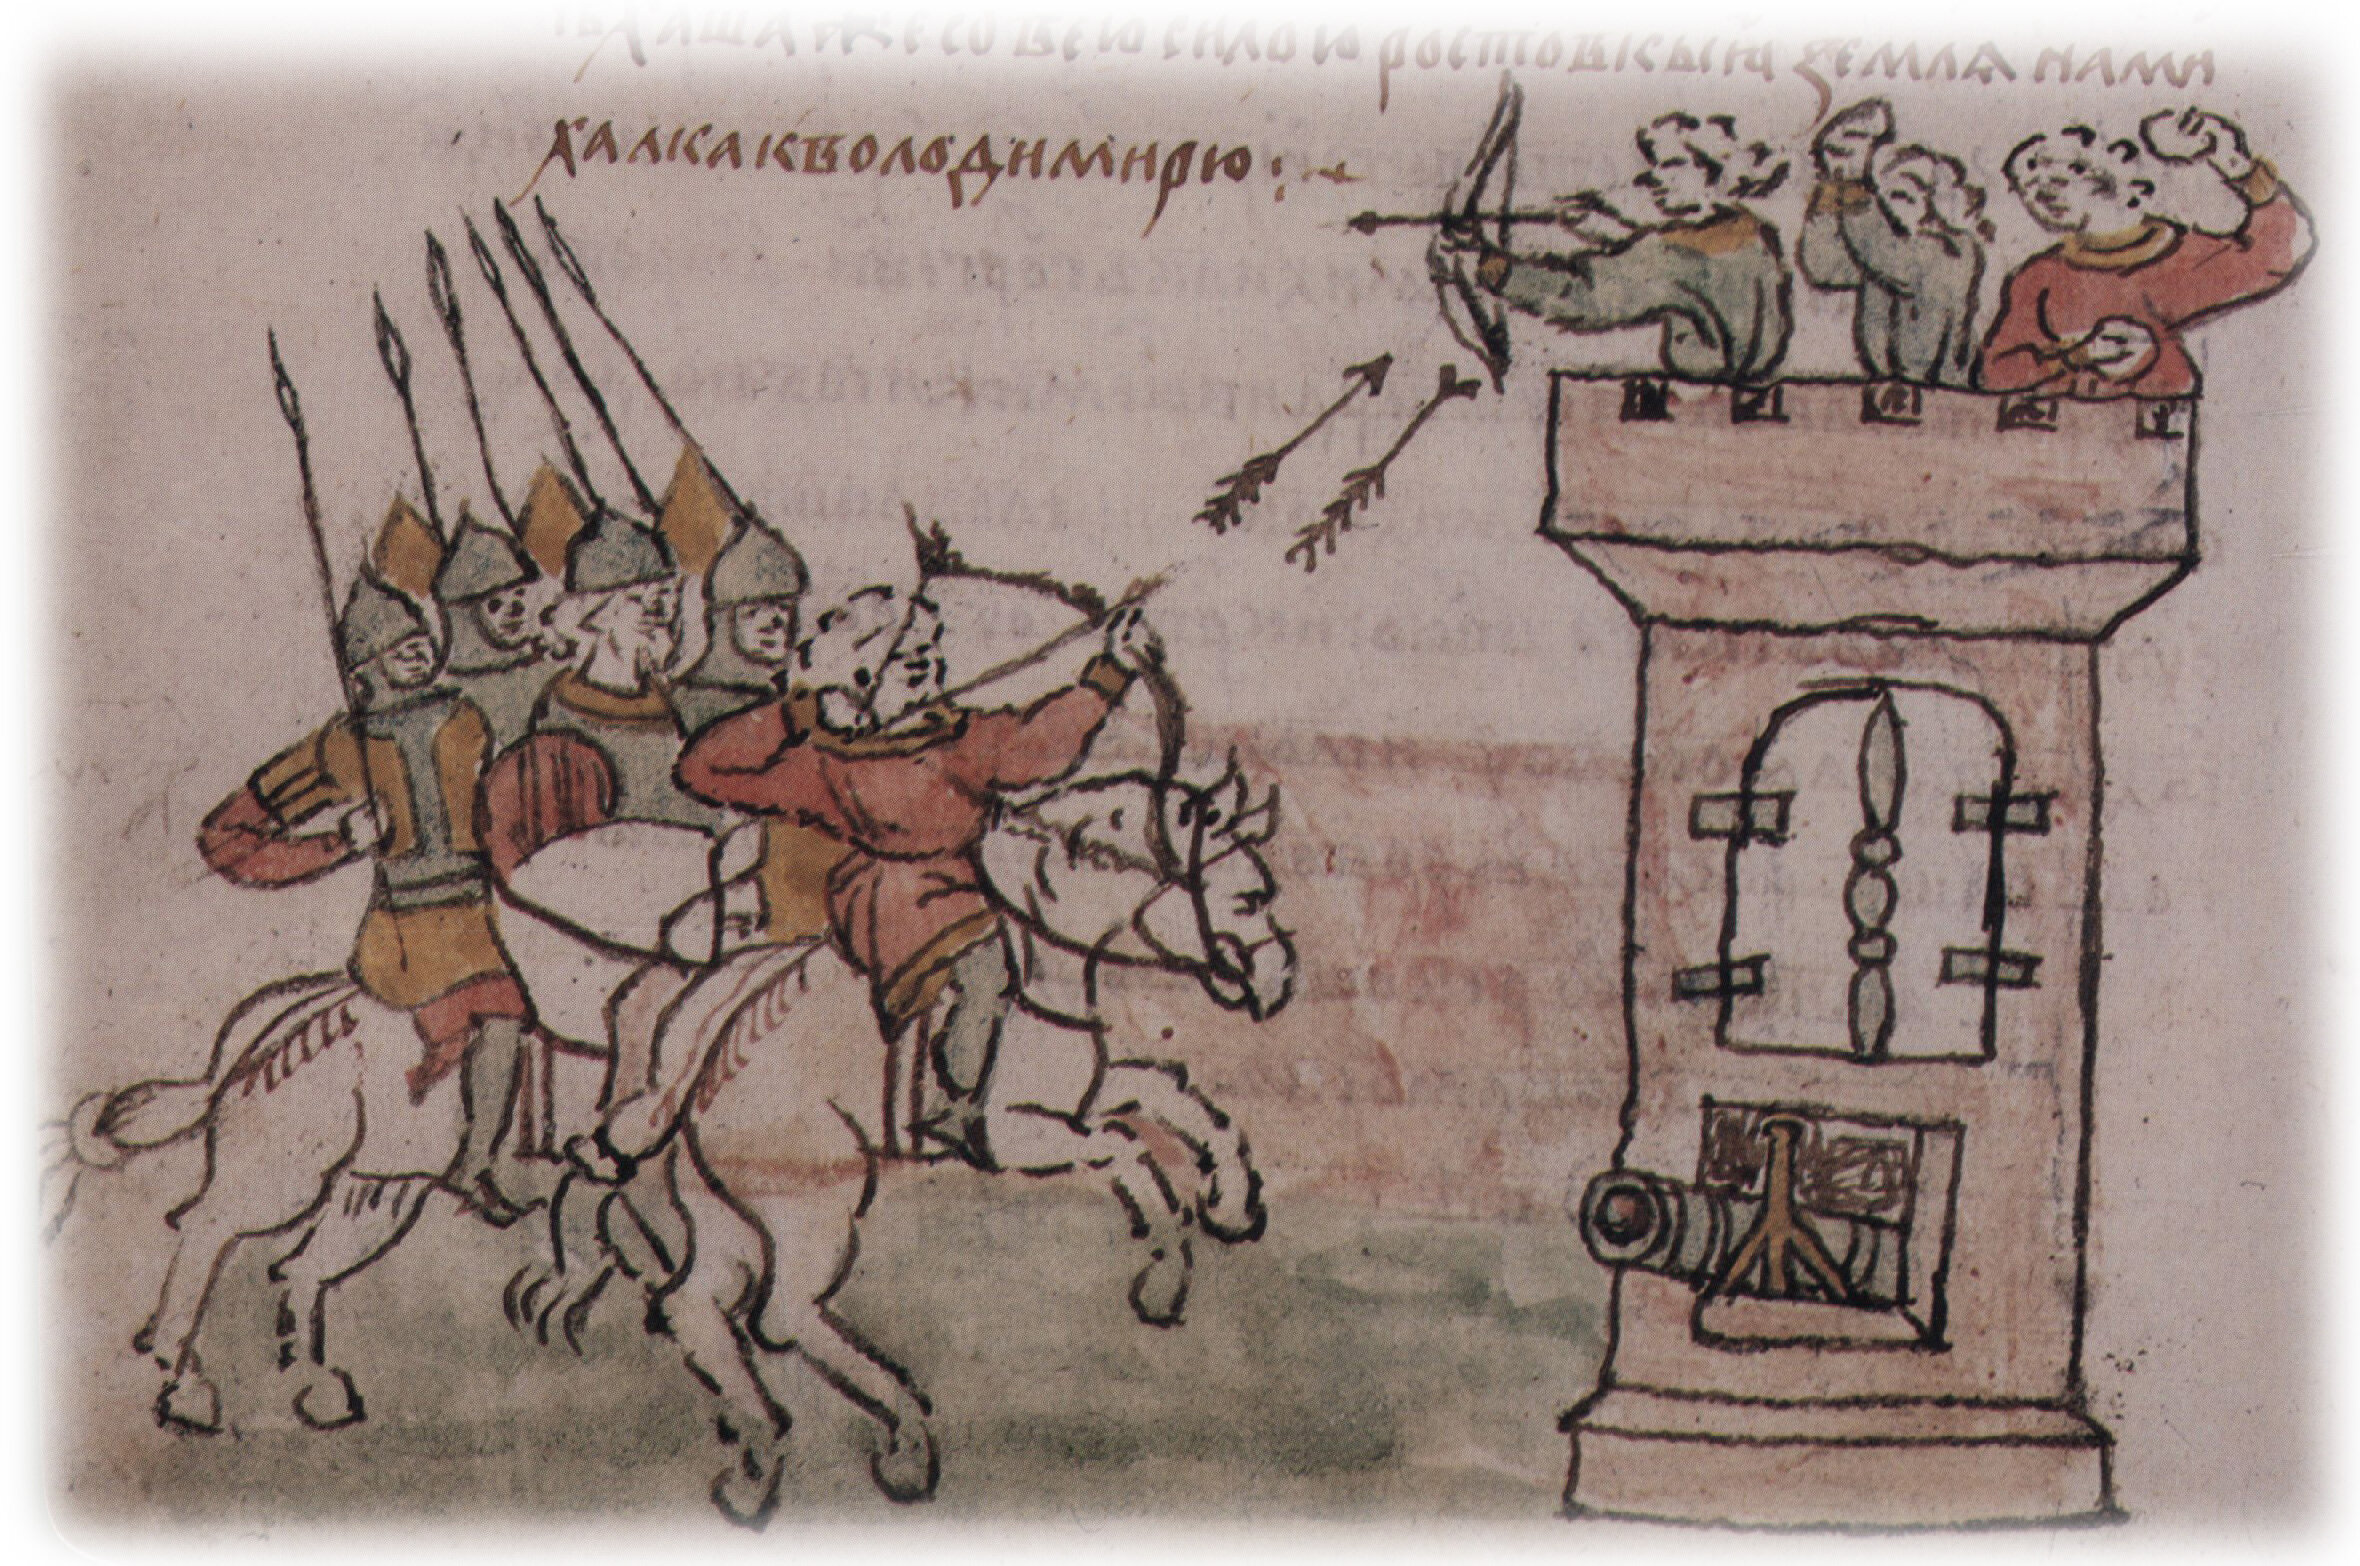 ѣхаша же со всею силою ростовьскыꙗ землѧ на ми
халка к володимирю :~